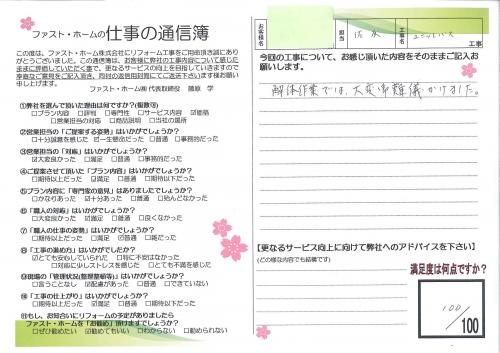 ファスト・ホームの仕事の通信簿
この度は、ファスト・ホーム株式会社にリフォーム工事をご用命頂き誠にあり
がとうございました。この通信簿は、お客様に弊社の工事内容について感じた
ままに評価していただく事で、更なるサービス向上を目指していきますので
率直なご意見をご記入頂き、同封の返信用封筒にてご返送下さいます様お願い
申し上げます。
ファスト・ホーム㈱ 代表取締役 藤原 学
①弊社を選んで頂いた理由は何ですか?(複数可)
□プラン内容 □評判 □専門性 ☑サービス内容 ☑価格
□営業担当の対応 □商品説明 □当社の場所
②営業担当の「ご提案する姿勢」はいかがでしょうか?
□十分誠意を感じた ☑一生懸命だった □普通 □事務的だった
③営業担当の「対応」はいかがでしょうか?
☑大変良かった □満足 □普通 □事務的だった
④ご提案させて頂いた「プラン内容」はいかがでしょうか?
□期待以上だった ☑満足 □普通 □期待以下だった
⑤プラン内容に「専門家の意見」はありましたでしょうか?
□かなりあった ☑十分あった □普通 □殆んどなかった
⑥「職人の対応」はいかがでしょうか?
□大変良かった ☑満足 □普通 □良くなかった
⑦「職人の仕事の姿勢」はいかがでしょうか?
□期待以上だった □満足 ☑普通 □雑だった
⑧「工事の進めかた」はいかがでしたか?
☑とても安心していられた □特に不安はなかった
□対応に少しストレスを感じた □とても不満を感じた
⑨現場の「管理状況(整理整頓等)」はいかがでしょうか?
□言うことなし ☑配慮があった □普通 □できていない
⑩「工事の仕上がり」はいかがでしょうか?
□期待以上だった ☑満足 □普通 □期待以下だった
⑪もし、お知合いにリフォームの予定がありましたら
ファスト・ホームを「お勧め」頂けますでしょうか?
□ぜひ勧めたい ☑勧めてもいい □わからない □勧められない
お客様名
様
工事名
工事
今回の工事について、お感じ頂いた内容をそのままご記入お
願いします。
解体作業では、大変御難儀かけました。
【更なるサービス向上に向けて弊社へのアドバイスを下さい】
(どの様な内容でも結構です)
満足度は何点ですか?
100
/100